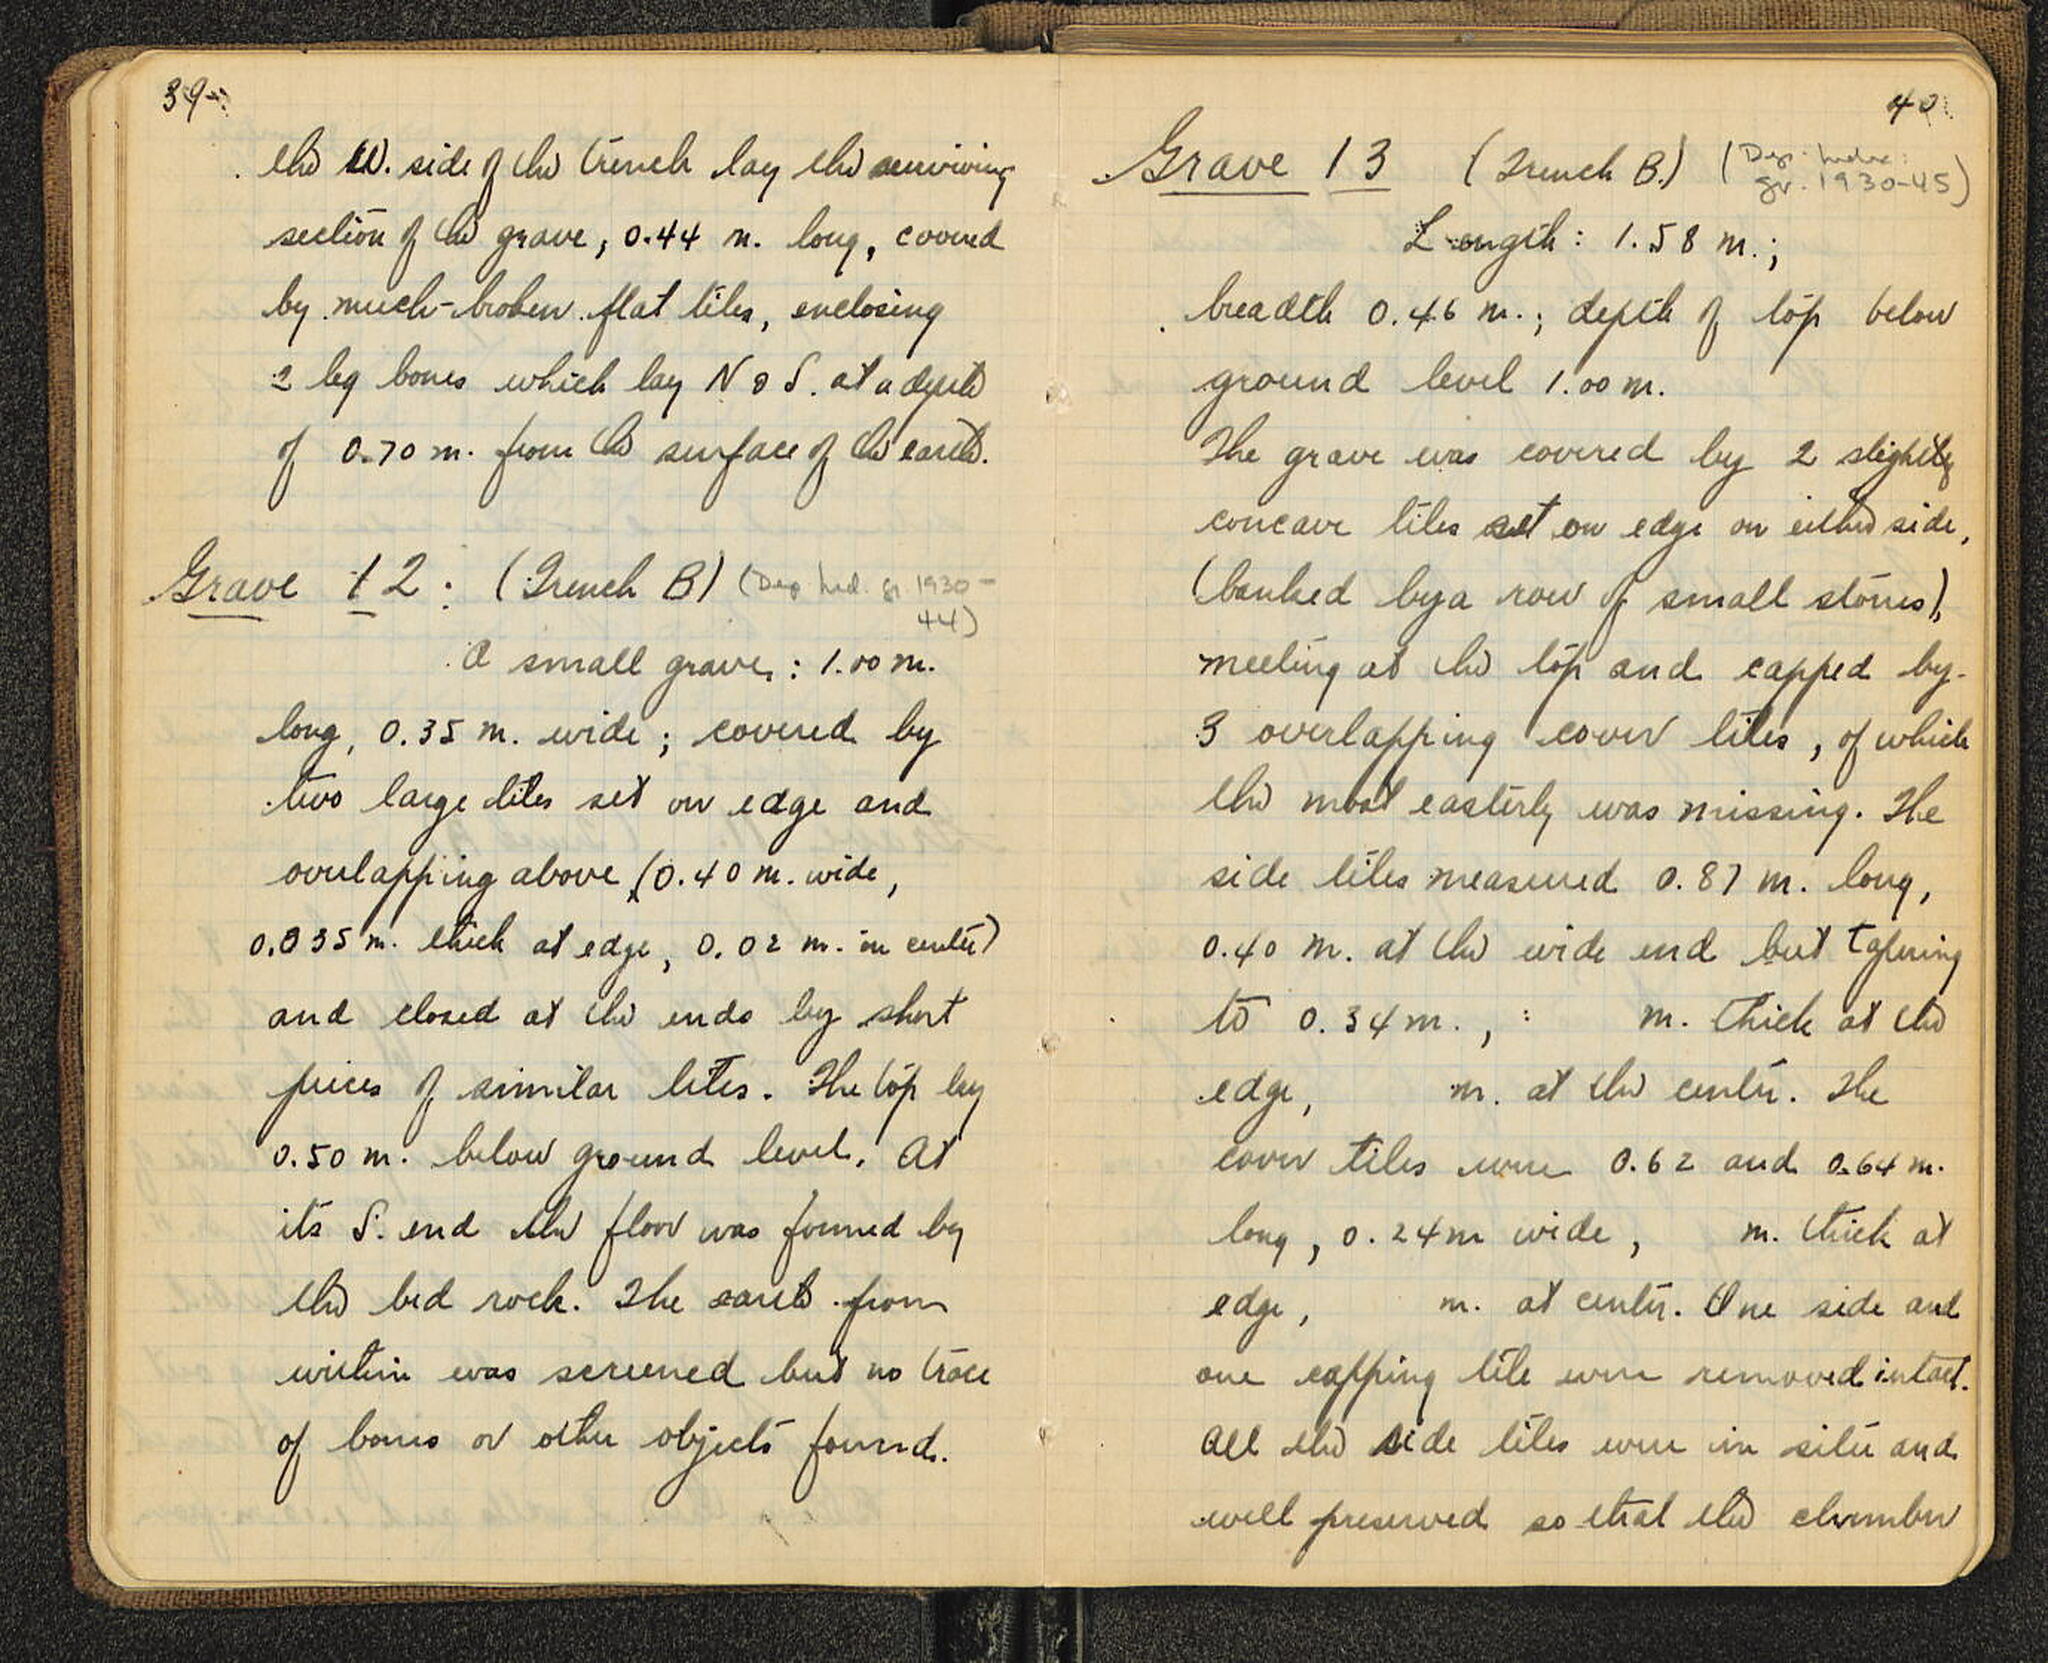 39
the W. side of the trench lay the surviving
section of the grave, 0.44 m. long, covered
by much-broken flat tiles, enclosing
2 leg bones which lay N & S. at a depth
of 0.70 m. from the surface of the earth.
Grave 12: (Trench B) (Dep. Ind. gr. 1930-
44)
A small grave: 1.00 m.
long, 0.35 m. wide; covered by
two large tiles set on edge and
overlapping above (0.40 m. wide,
0.035 m. thick at edge, 0.02 m. in center)
and closed at the ends by short
pieces of similar tiles. The top lay
0.50 m. below ground level. At
its S. end the floor was formed by
the bed rock. The earth from
within was screened but no trace
of bones or other objects found.
40
Grave 13 (Trench B.) (Dep. Index:
gr. 1930-45)
Length: 1.58 m.;
breadth 0.46 m.; depth of top below
ground level 1.00 m.
The grave was covered by 2 slightly
concave tiles set on edge on either side,
(banked by a row of small stones),
meeting at the top and capped by
3 overlapping cover tiles, of which
the most easterly was missing. The
side tiles measured 0.87 m. long,
0.40 m. at the wide end but tapering
to 0.34 m., m. thick at the
edge, m. at the center. The
cover tiles were 0.62 and 0.64 m.
long, 0.24 m wide, m. thick at
edge, m. at center. One side and
one capping tile were removed intact.
All the side tiles were in situ and
well preserved so that the chamber